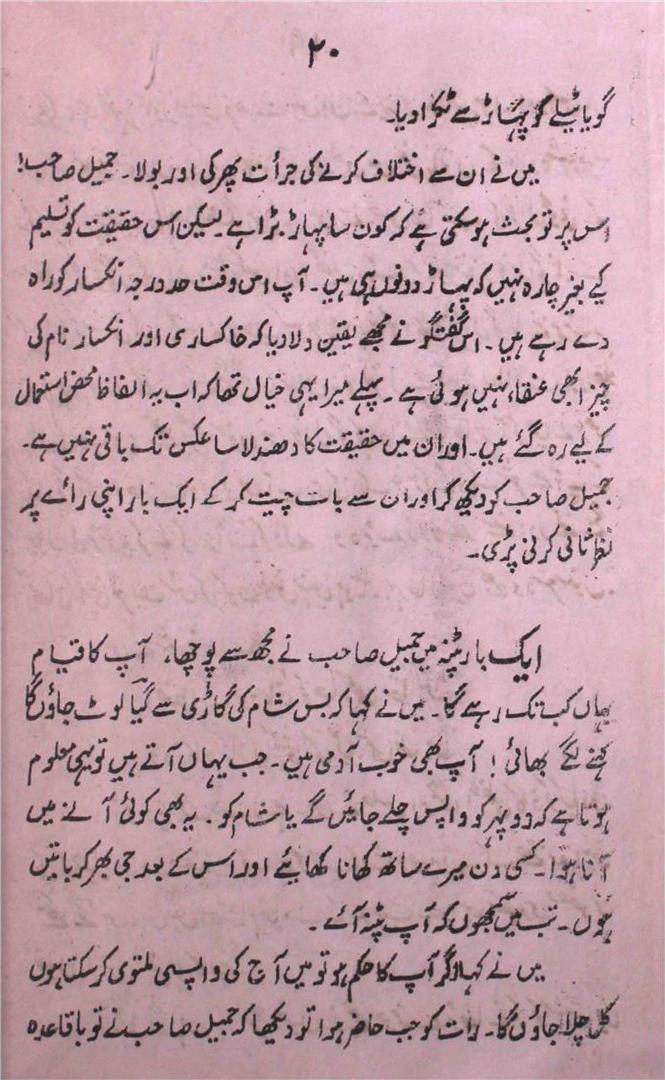 ۲۰
گویا ٹیلے کو پہاڑ سے ٹکرا دیا۔
میں نے ان سے اختلاف کرنے کی جرأت پھر کی اور بولا۔ جمیل صاحب!
اس پر تو بحث ہو سکتی ہے کہ کون سا پہاڑ بڑا ہے لیکن اس حقیقت کو تسلیم
کیے بغیر چارہ نہیں کہ پہاڑ دونوں ہی ہیں۔ آپ اس وقت حد درجہ انکسار کو راہ
دے رہے ہیں۔ اس گفتگو نے مجھے یقین دلا دیا کہ خاکساری اور انکسار نام کی
چیز ابھی عنقاء نہیں ہوئی ہے۔ پہلے میرا یہی خیال تھا کہ اب یہ الفاظ محض استعمال
کے لیے رہ گئے ہیں۔ اور ان میں حقیقت کا دھندلا سا عکس تک باقی نہیں ہے۔
جمیل صاحب کو دیکھ کر اور ان سے بات چیت کر کے ایک بار اپنی رائے پر
نظر ثانی کرنی پڑی۔
ایک بار پٹنہ میں جمیل صاحب نے مجھ سے پوچھا، آپ کا قیام
یہاں کب تک رہے گا۔ میں نے کہا کہ بس شام کی گاڑی سے گیا لوٹ جاؤں گا
کہنے لگے بھائی! آپ بھی خوب آدمی ہیں۔ جب یہاں آتے ہیں تو یہی معلوم
ہوتا ہے کہ دوپہر کو واپس چلے جائیں گے یا شام کو۔ یہ بھی کوئی آنے میں
آنا ہوا۔ کسی دن میرے ساتھ کھانا کھایئے اور اس کے بعد جی بھر کر باتیں
ہوں۔ تب میں سمجھوں کہ آپ پٹنہ آئے۔
میں نے کہا اگر آپ کا حکم ہو تو میں آج کی واپسی ملتوی کر سکتا ہوں
کل چلا جاؤں گا۔ رات کو جب حاضر ہوا تو دیکھا کہ جمیل صاحب نے تو باقاعدہ